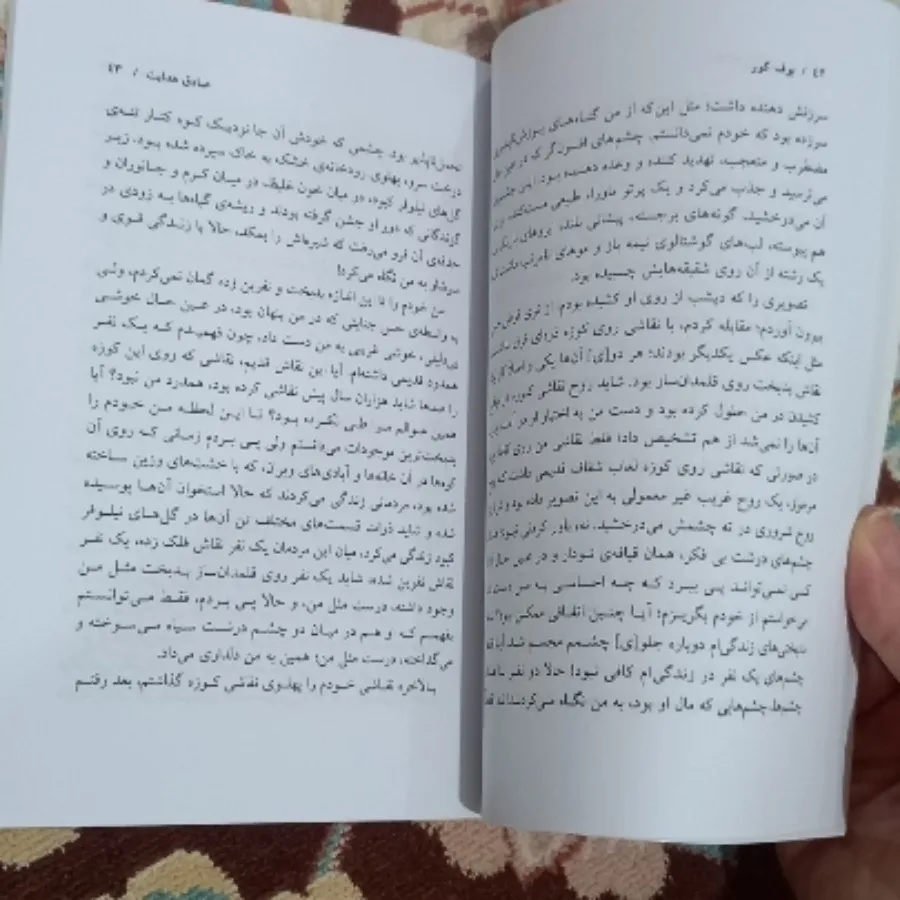 ۴۲ / بوف کور
سرزنش دهنده داشت؛ مثل این‌که از من گناه‌های پوزش‌ناپذیری
سرزده بود که خودم نمی‌دانستم. چشم‌های افسون‌گر که در عین حال
مضطرب و متعجب، تهدید کننده و وعده دهنده بود. این چشم‌ها
می‌ترسید و جذب می‌کرد و یک پرتو ماوراء طبیعی مست‌کننده در
آن می‌درخشید. گونه‌های برجسته، پیشانی بلند، ابروهای باریک
هم پیوسته، لب‌های گوشتالوی نیمه باز و موهای نامرتب داشت که
یک رشته از آن روی شقیقه‌هایش چسبیده بود.
تصویری را که دیشب از روی او کشیده بودم از توی قوطی حلبی
بیرون آوردم؛ مقابله کردم، با نقاشی روی کوزه ذره‌ای فرق نداشت
مثل اینکه عکس یکدیگر بودند؛ هر دو[ی] آن‌ها یکی و اصلاً کار یک
نقاش بدبخت روی قلمدان‌ساز بود. شاید روح نقاش کوزه در موقع
کشیدن در من حلول کرده بود و دست من به اختیار او در آمده
آن‌ها را نمی‌شد از هم تشخیص داد؛ فقط نقاشی من روی کاغذ بود
در صورتی که نقاشی روی کوزه لعاب شفاف قدیمی داشت که روح
مرموز، یک روح غریب غیر معمولی به این تصویر داده بود و شراره
روح شروری در ته چشمش می‌درخشید. نه، باور کردنی نبود؛ همان
چشم‌های درشت بی فکر، همان قیافه‌ی تودار و در عین حال آزاد
کسی نمی‌تواند پی ببرد که چه احساسی به من دست داد
می‌خواستم از خودم بگریزم؛ آیا چنین اتفاقی ممکن بود؟ تمام
بدبختی‌های زندگی‌ام دوباره جلو[ی] چشمم مجسم شد؛ آیا فقط
چشم‌های یک نفر در زندگی‌ام کافی نبود؛ حالا دو نفر با همان
چشم‌ها، چشم‌هایی که مال او بود، به من نگاه می‌کردند! نه قطعاً
صادق هدایت / ۴۳
تحمل‌ناپذیر بود. چشمی که خودش آن جا نزدیک کوه کنار تنه‌ی
درخت سرو، پهلوی رودخانه‌ی خشک به خاک سپرده شده بود. زیر
گل‌های نیلوفر کبود، در میان خون غلیظ، در میان کرم و جانوران و
گزندگانی که دور او جشن گرفته بودند و ریشه‌ی گیاه‌ها به زودی در
حدقه‌ی آن فرو می‌رفت که شیره‌اش را بمکد، حالا با زندگی قوی و
سرشار به من نگاه می‌کرد!
من خودم را تا این اندازه بدبخت و نفرین زده گمان نمی‌کردم، ولی
به واسطه‌ی حس جنایتی که در من پنهان بود، در عین حال خوشی
بی‌دلیلی، خوشی غریبی به من دست داد، چون فهمیدم که یک نفر
همدرد قدیمی داشته‌ام. آیا این نقاش قدیم، نقاشی که روی این کوزه
را صدها شاید هزاران سال پیش نقاشی کرده بود، همدرد من نبود؟ آیا
همین عوالم مرا طی نکرده بود؟ تا این لحظه من خودم را
بدبخت‌ترین موجودات می‌دانستم ولی پی بردم زمانی که روی آن
کوه‌ها در آن خانه‌ها و آبادی‌های ویران، که با خشت‌های وزین ساخته
شده بود، مردمانی زندگی می‌کردند که حالا استخوان آن‌ها پوسیده
شده و شاید ذرات قسمت‌های مختلف تن آن‌ها در گل‌های نیلوفر
کبود زندگی می‌کرد، میان این مردمان یک نفر نقاش فلک زده، یک نفر
نقاش نفرین شده، شاید یک نفر روی قلمدان‌ساز بدبخت مثل من
وجود داشته، درست مثل من، و حالا پی بردم، فقط می‌توانستم
بفهمم که او هم در میان دو چشم درشت سیاه می‌سوخته و
می‌گداخته، درست مثل من؛ همین به من دلداری می‌داد.
بالاخره نقاشی خودم را پهلوی نقاشی کوزه گذاشتم، بعد رفتم